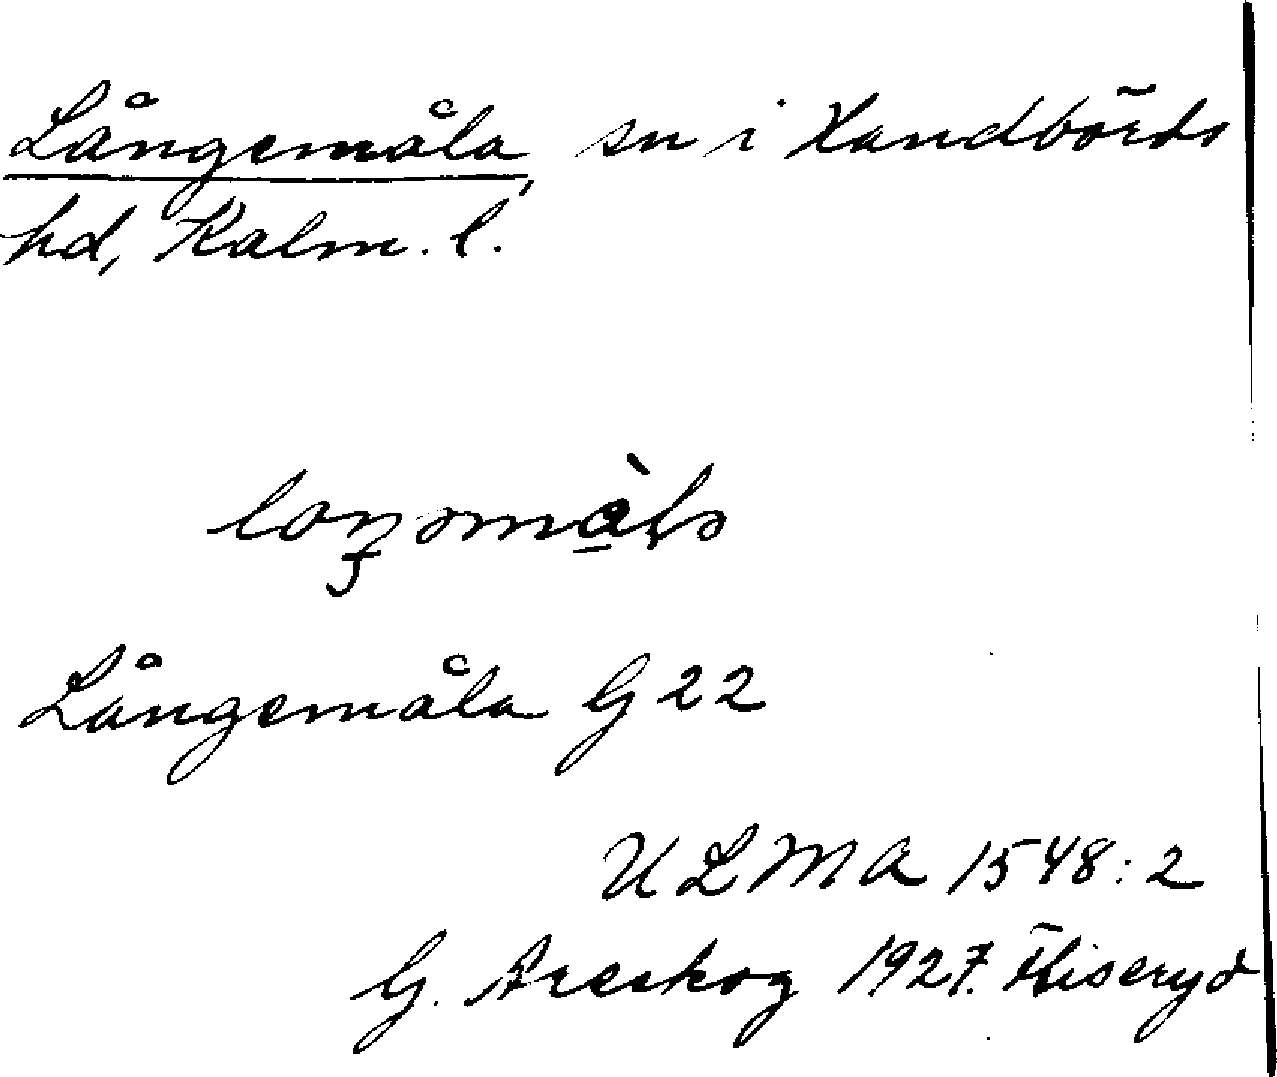 Långemåla, sn i Handbörds
hd, Kalm. l.
Långemåla G 22
ULMA 1548:2
G. Areskog 1927. Fliseryd